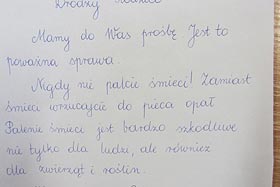 Drodzy Rodzice
Mamy do Was prośbę. Jest to
poważna sprawa.
Nigdy nie palcie śmieci! Zamiast
śmieci wrzucajcie do pieca opał
Palenie śmieci jest bardzo szkodliwe
nie tylko dla ludzi, ale również
dla zwierząt i roślin.